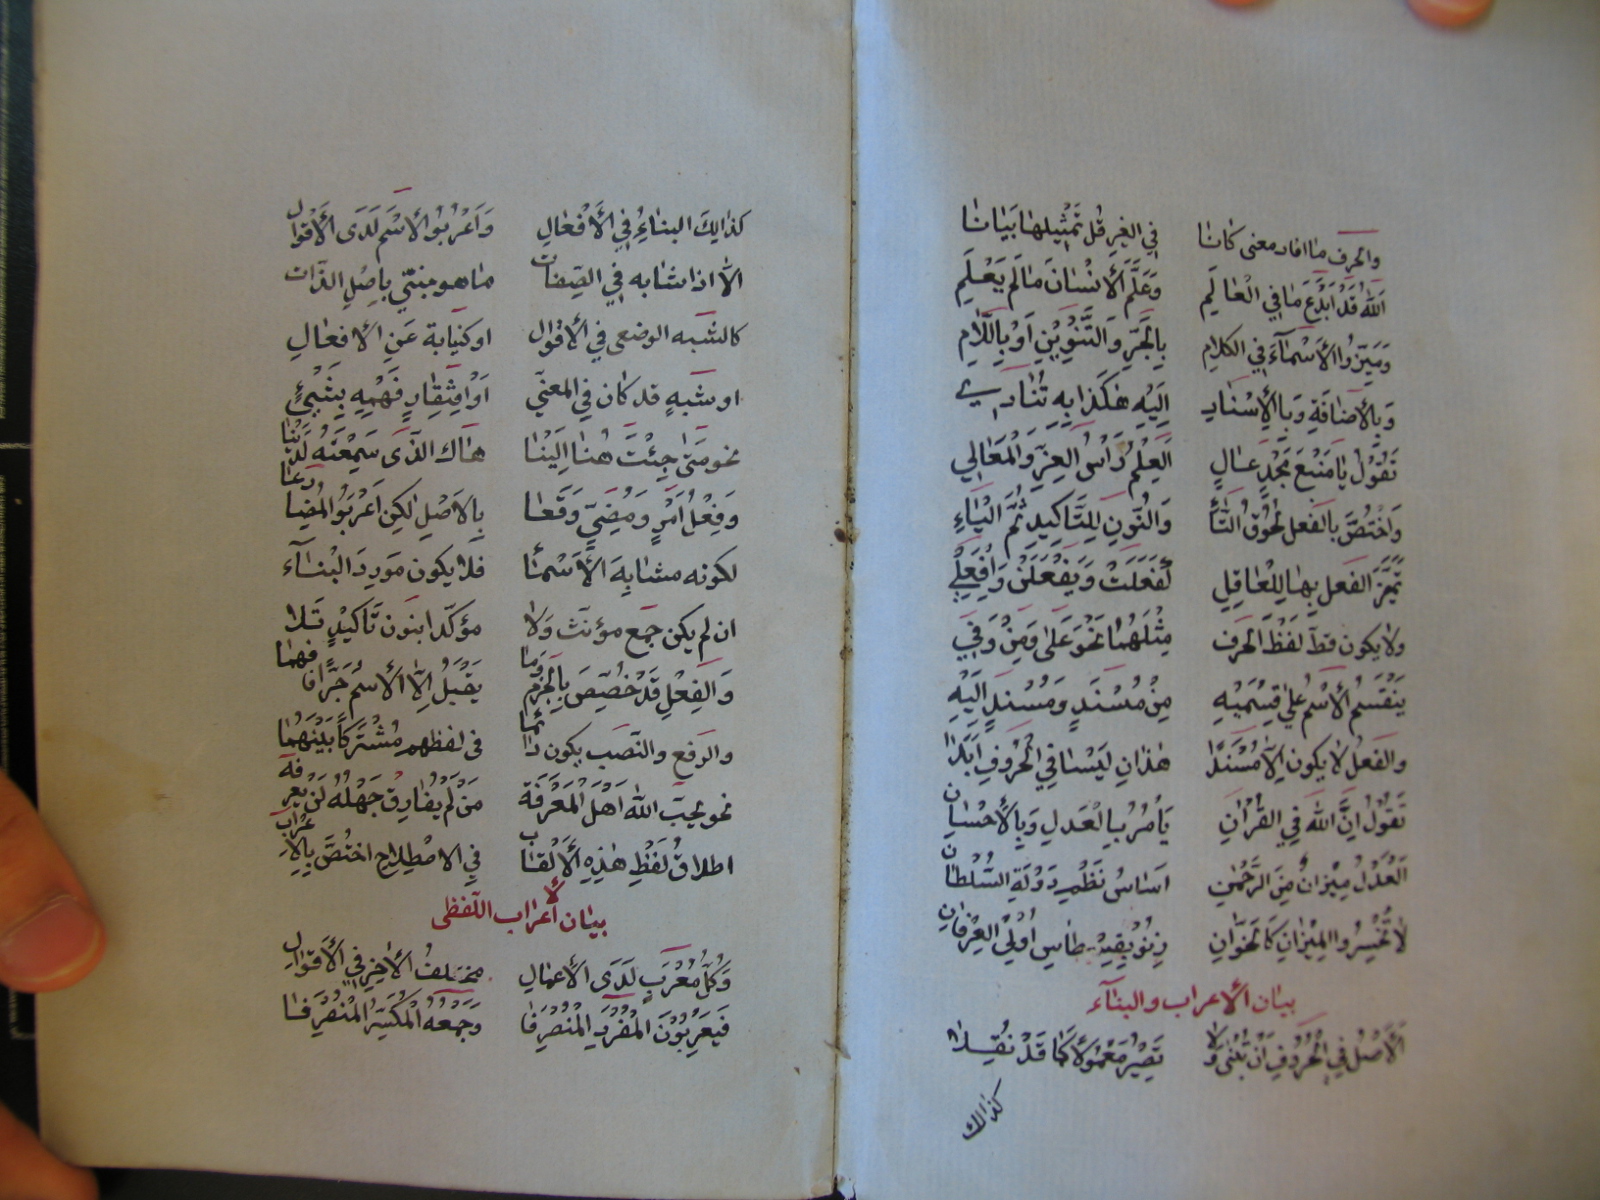 والحرف ما افاد معنى كانا في الغير قل تمثيلها بيانا
الله قد ابدع ما في العالم وعلم الانسان ما لم يعلم
وميزوا الأسماء في الكلام بالجر والتنوين او باللام
وبالأضافة وبالأسناد اليه هكذا به تنادي
تقول يا منبع مجد عال العلم راس العز والمعالي
واختص بالفعل لحوق التاء والنون للتاكيد ثم الياء
تميز الفعل بها للعاقل لفعلت ويفعلن وافعلي
ولا يكون قط لفظ الحرف مثلهما نحو على ومن وفي
ينقسم الأسم على قسميه من مسند ومسند اليه
والفعل لا يكون الا مسندا هذان ليسا في الحروف ابدا
تقول ان الله في القران يأمر بالعدل وبالأحسان
العدل ميزان من الرحمن اساس نظم دولة السلطان
لا تخسروا الميزان كالخوان زنو بقسطاس اولي العرفان
بيان الأعراب والبناء
الأصل في الحروف ان تبنى ولا تصير معمولا كما قد نقلا
كذالك
كذالك البناء في الأفعال واعربوا الأسم لدى الأقوال
الا اذا شابه في الصفات ما هو مبني باصل الذات
كالشبه الوضعي في الأقوال او كناية عن الافعال
او شبه قد كان في المعنى او افتقار فهمه بشيئ
نحو متى جئت هنا الينا هاك الذى سمعته لدينا
وفعل امر ومضي وقعا بالاصل لكن اعربوا المضارعا
لكونه مشابه الأسماء فلا يكون مورد البناء
ان لم يكن جمع مؤنث ولا مؤكدا بنون تاكيد تلا
والفعل قد خصص بالجزم وما يقبل الا الأسم جرا فافهما
والرفع والنصب يكون دائما فى لفظهم مشتركا بينهما
نحو يحب الله اهل المعرفة من لم يفارق جهله لن يعرفه
اطلاق لفظ هذه الألقاب في الاصطلاح اختص بالاعراب
بيان الأعراب اللفظى
وكل معرب لدى الأعمال مختلف الأخر في الأقوال
فيعربون المفرد المنصرفا وجمعه المكسر المنصرفا